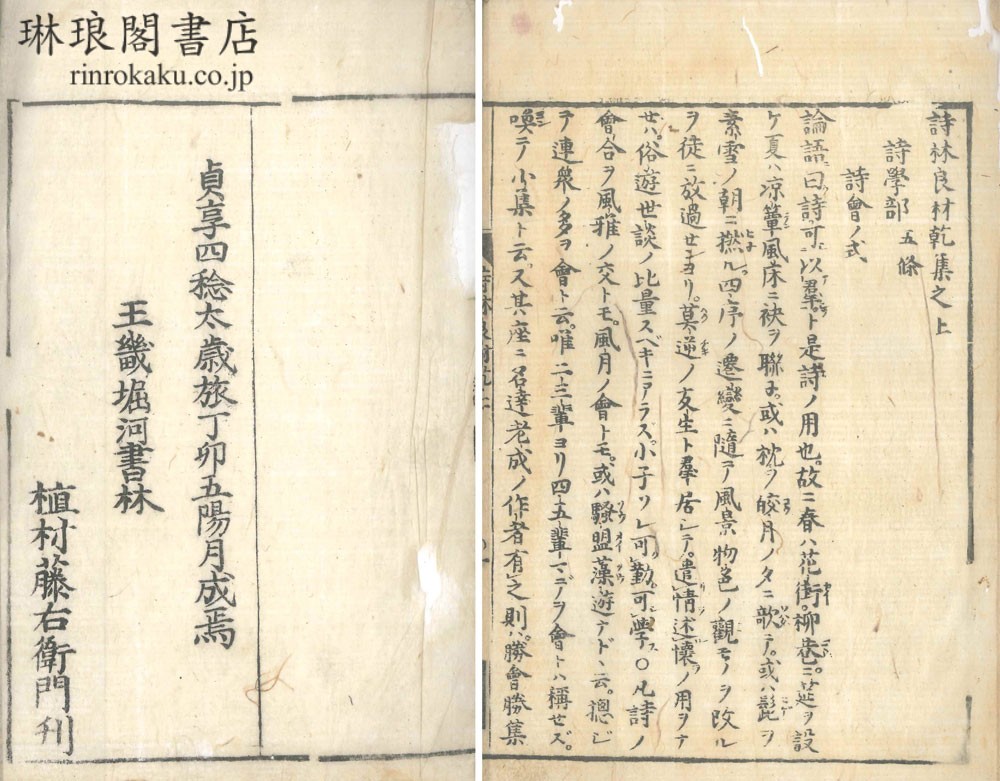 琳琅閣書店
rinrokaku.co.jp
詩林良材乾集之上
詩學部 五條
詩會ノ式
論語曰詩可以羣ト是詩ノ用也故ニ春ハ花街柳巷ニ莚ヲ設
ケ夏ハ凉簟風床ニ袂ヲ聯子或ハ枕ヲ皎月ノ夕ニ欹テ或ハ髭ヲ
素雪ノ朝ニ撚ル四序ノ遷變ニ隨テ風景物色ノ觀モノヲ改ル
ヲ徒ニ放過センヨリ莫逆ノ友生ト羣居シテ遣情述懷ノ用ヲナ
セハ俗遊世談ノ比量スベキニアラス小子ソレ可勤可學○凡詩ノ
會合ヲ風雅ノ交トモ風月ノ會トモ或ハ騷盟藻遊ナド丶云總ジ
テ連衆ノ多ヲ會ト云唯二三輩ヨリ四五輩マデヲ會トハ稱セズ
喚テ小集ト云又其座ニ名達老成ノ作者有之則ハ勝會勝集
貞享四稔太歳旅丁卯五陽月成焉
王畿堀河書林
植村藤右衛門刋